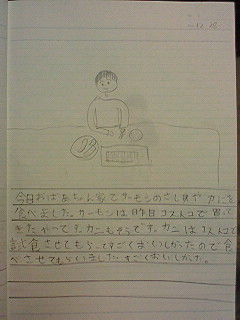 今日おばあちゃん家でサーモンのさしみやカニを
食べました。サーモンは昨日コストコで買って
きたやつです。カニもそうです。カニはコストコで
試食させてもらってすごくおいしかったので食
べさせてもらいましたすごくおいしかった。